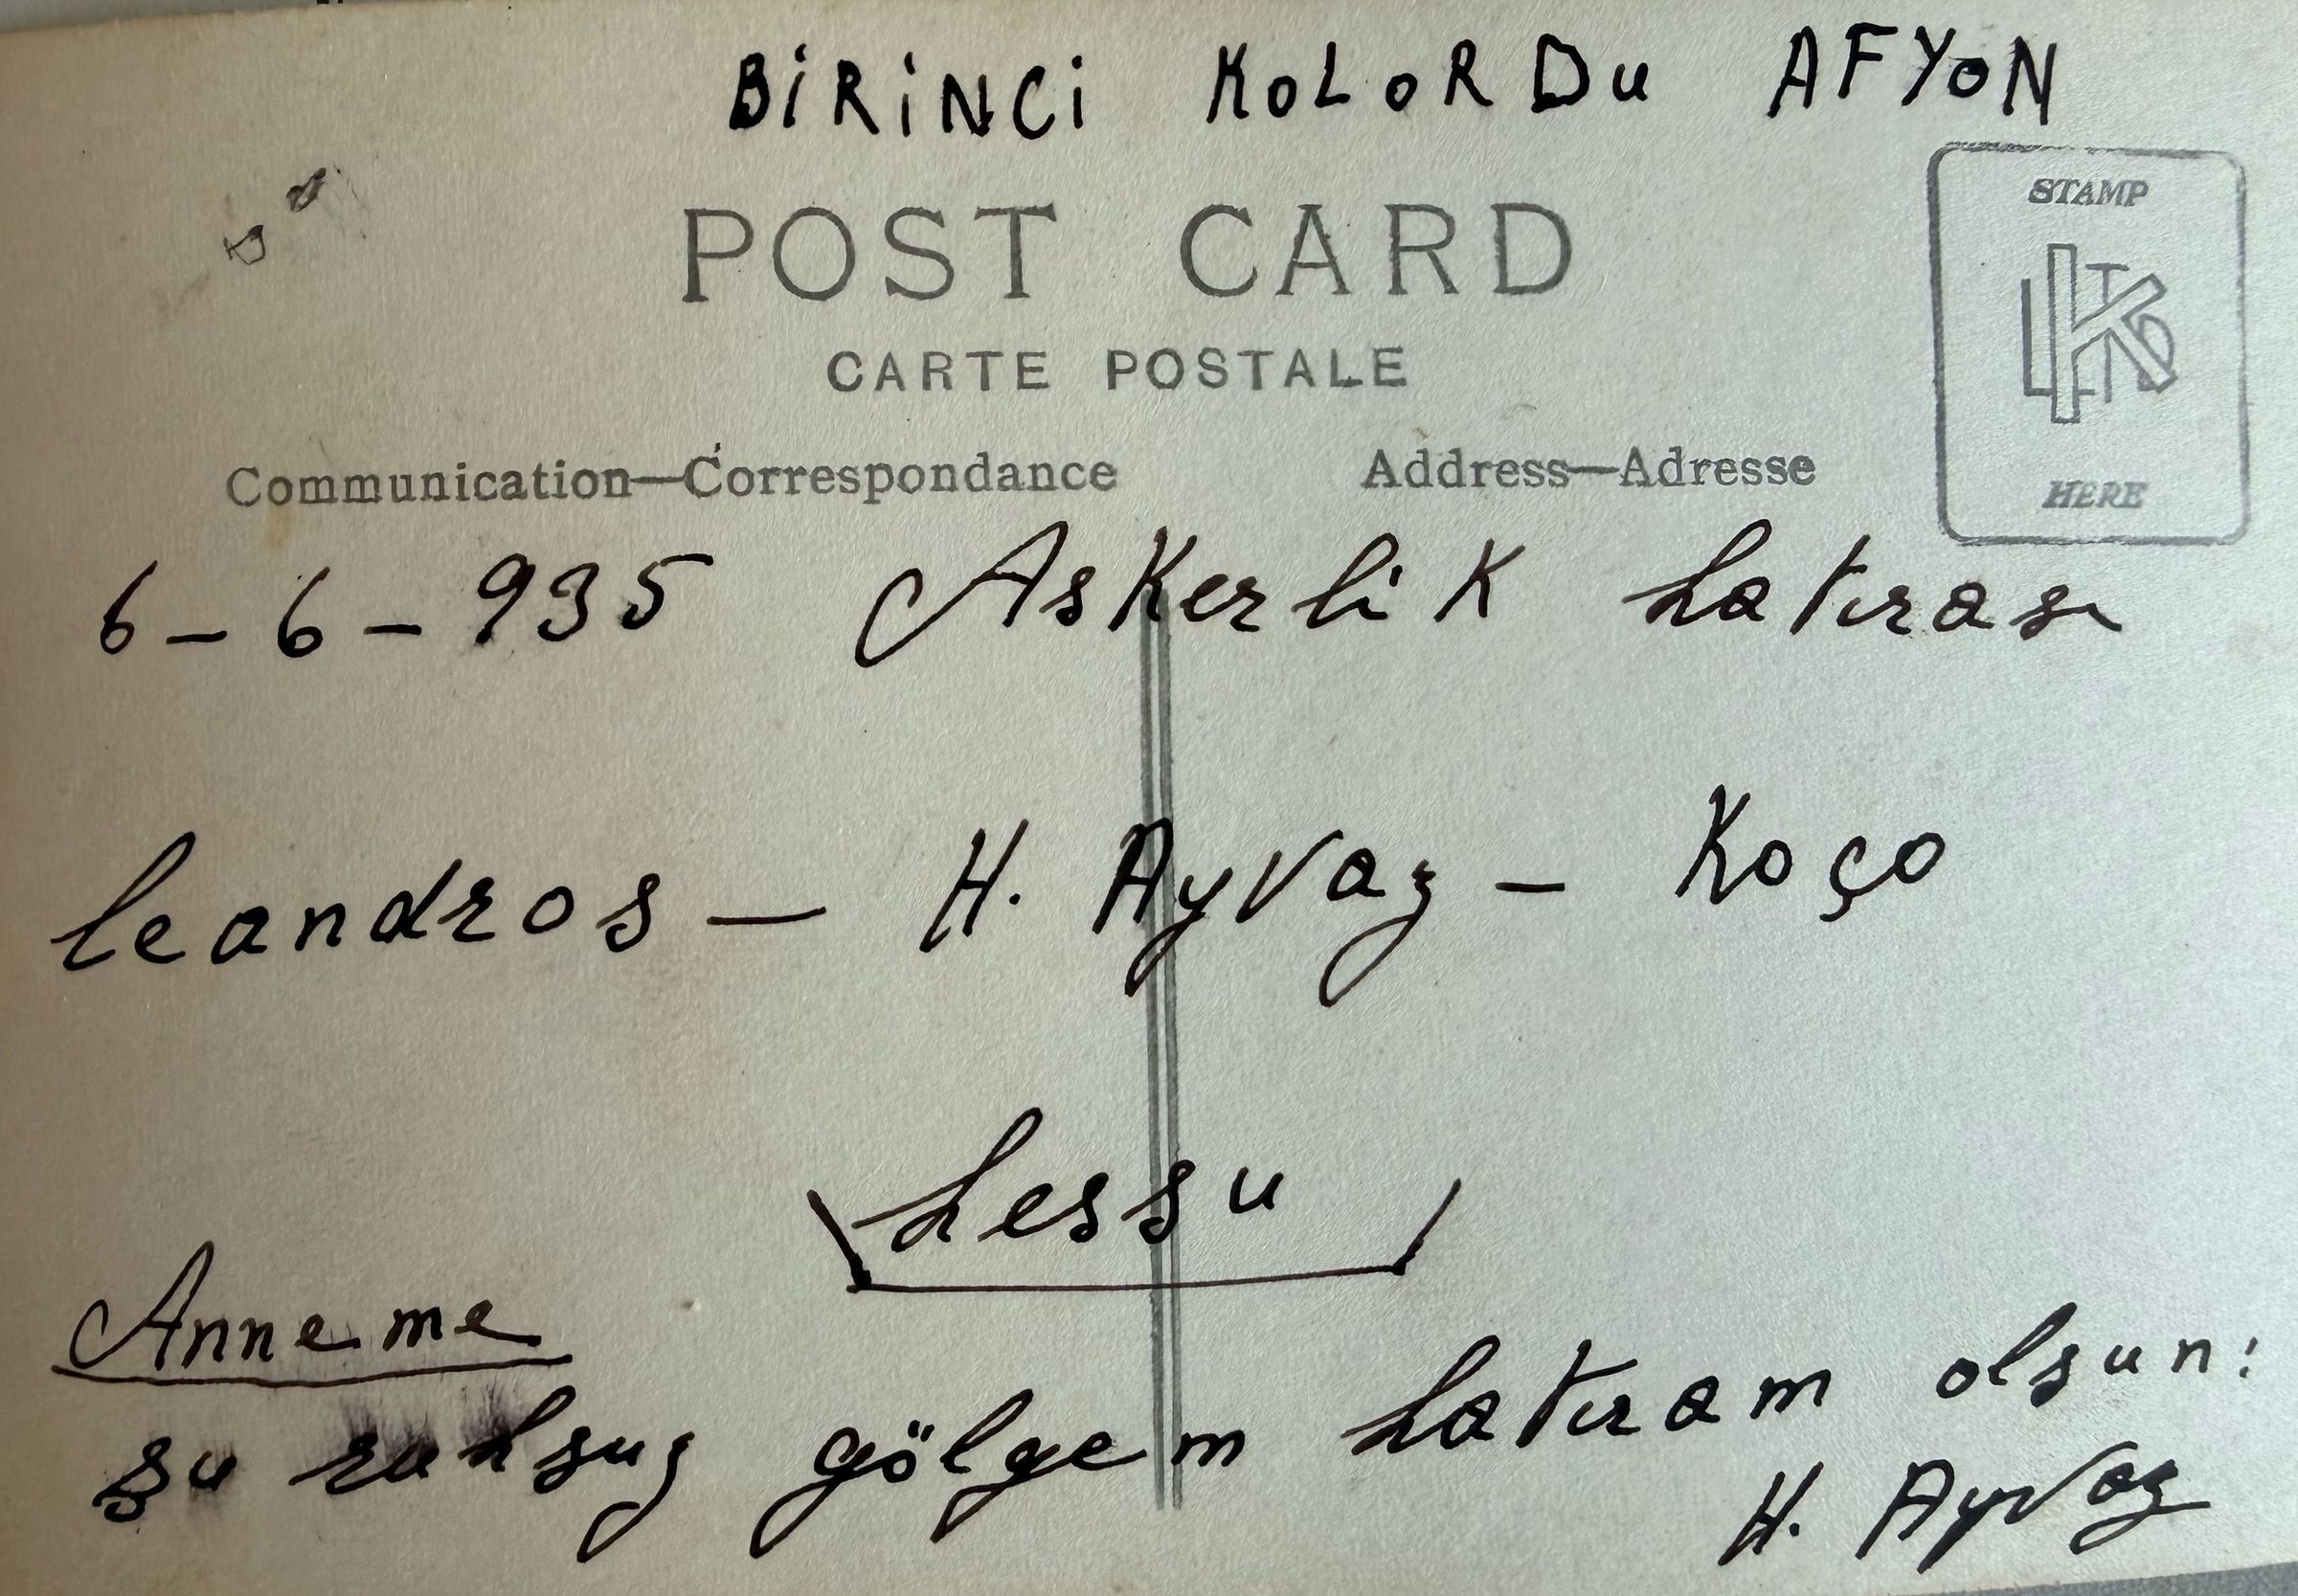 BiRiNCi KOLORDu AFYON
POST CARD
STAMP
CARTE POSTALE
Communication—Correspondance
Address—Adresse
HERE
6-6-935 Askerlik hatırası
leandros — H. Ayvaz — Koço
hessu
Anneme
şu ruhsuz gölgem hatıram olsun:
H. Ayvaz